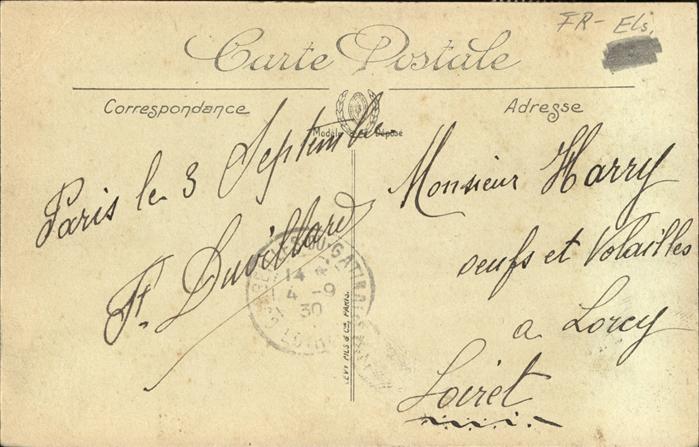 FR- Els.
Carte Postale
Correspondance
Adresse
Modèle Déposé
Paris le 3 Septembre
Ft. Duvillard
Monsieur Harry
oeufs et Volailles
a Lorcy
Loiret
GATINAIS
14
4 -9
30
LOIRET
LÉVY FILS & Cie, PARIS.